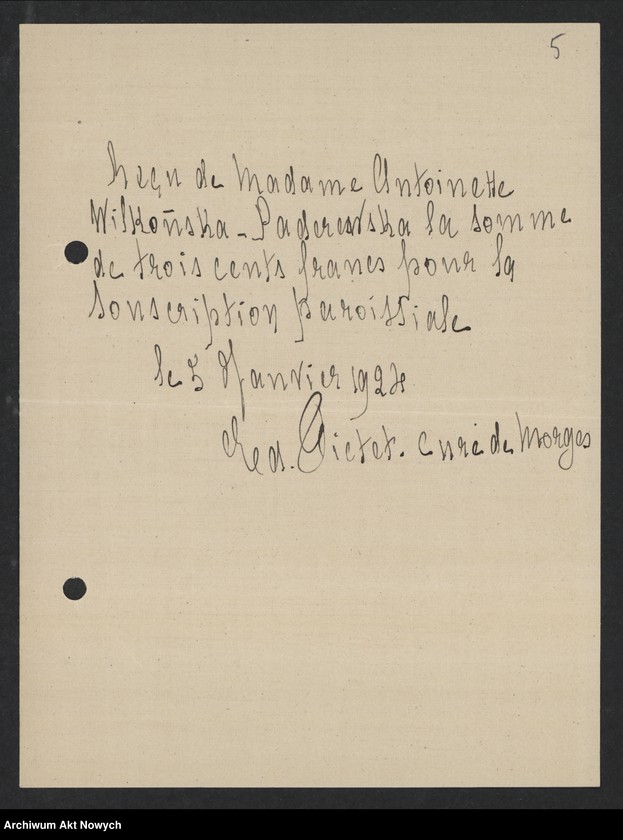 5
Reçu de Madame Antoinette
Wilkońska-Paderewska la somme
de trois cents francs pour la
souscription paroissiale
le 5 Janvier 1924
Pictet. curé de Morges
Archiwum Akt Nowych